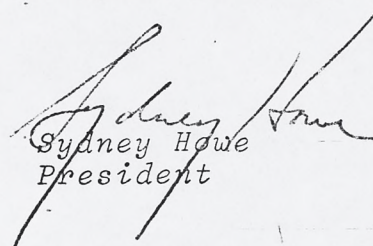 Sydney Howe
Sydney Howe
President